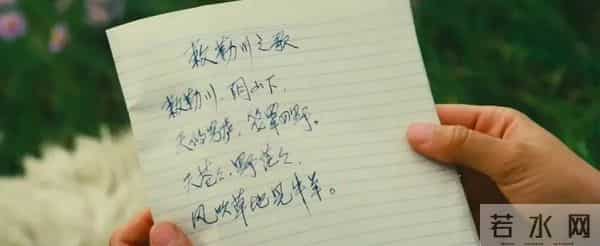 敕勒川之歌
敕勒川,阴山下,
天似穹庐,笼罩四野。
天苍々,野茫々,
风吹草地见牛羊。
若水网